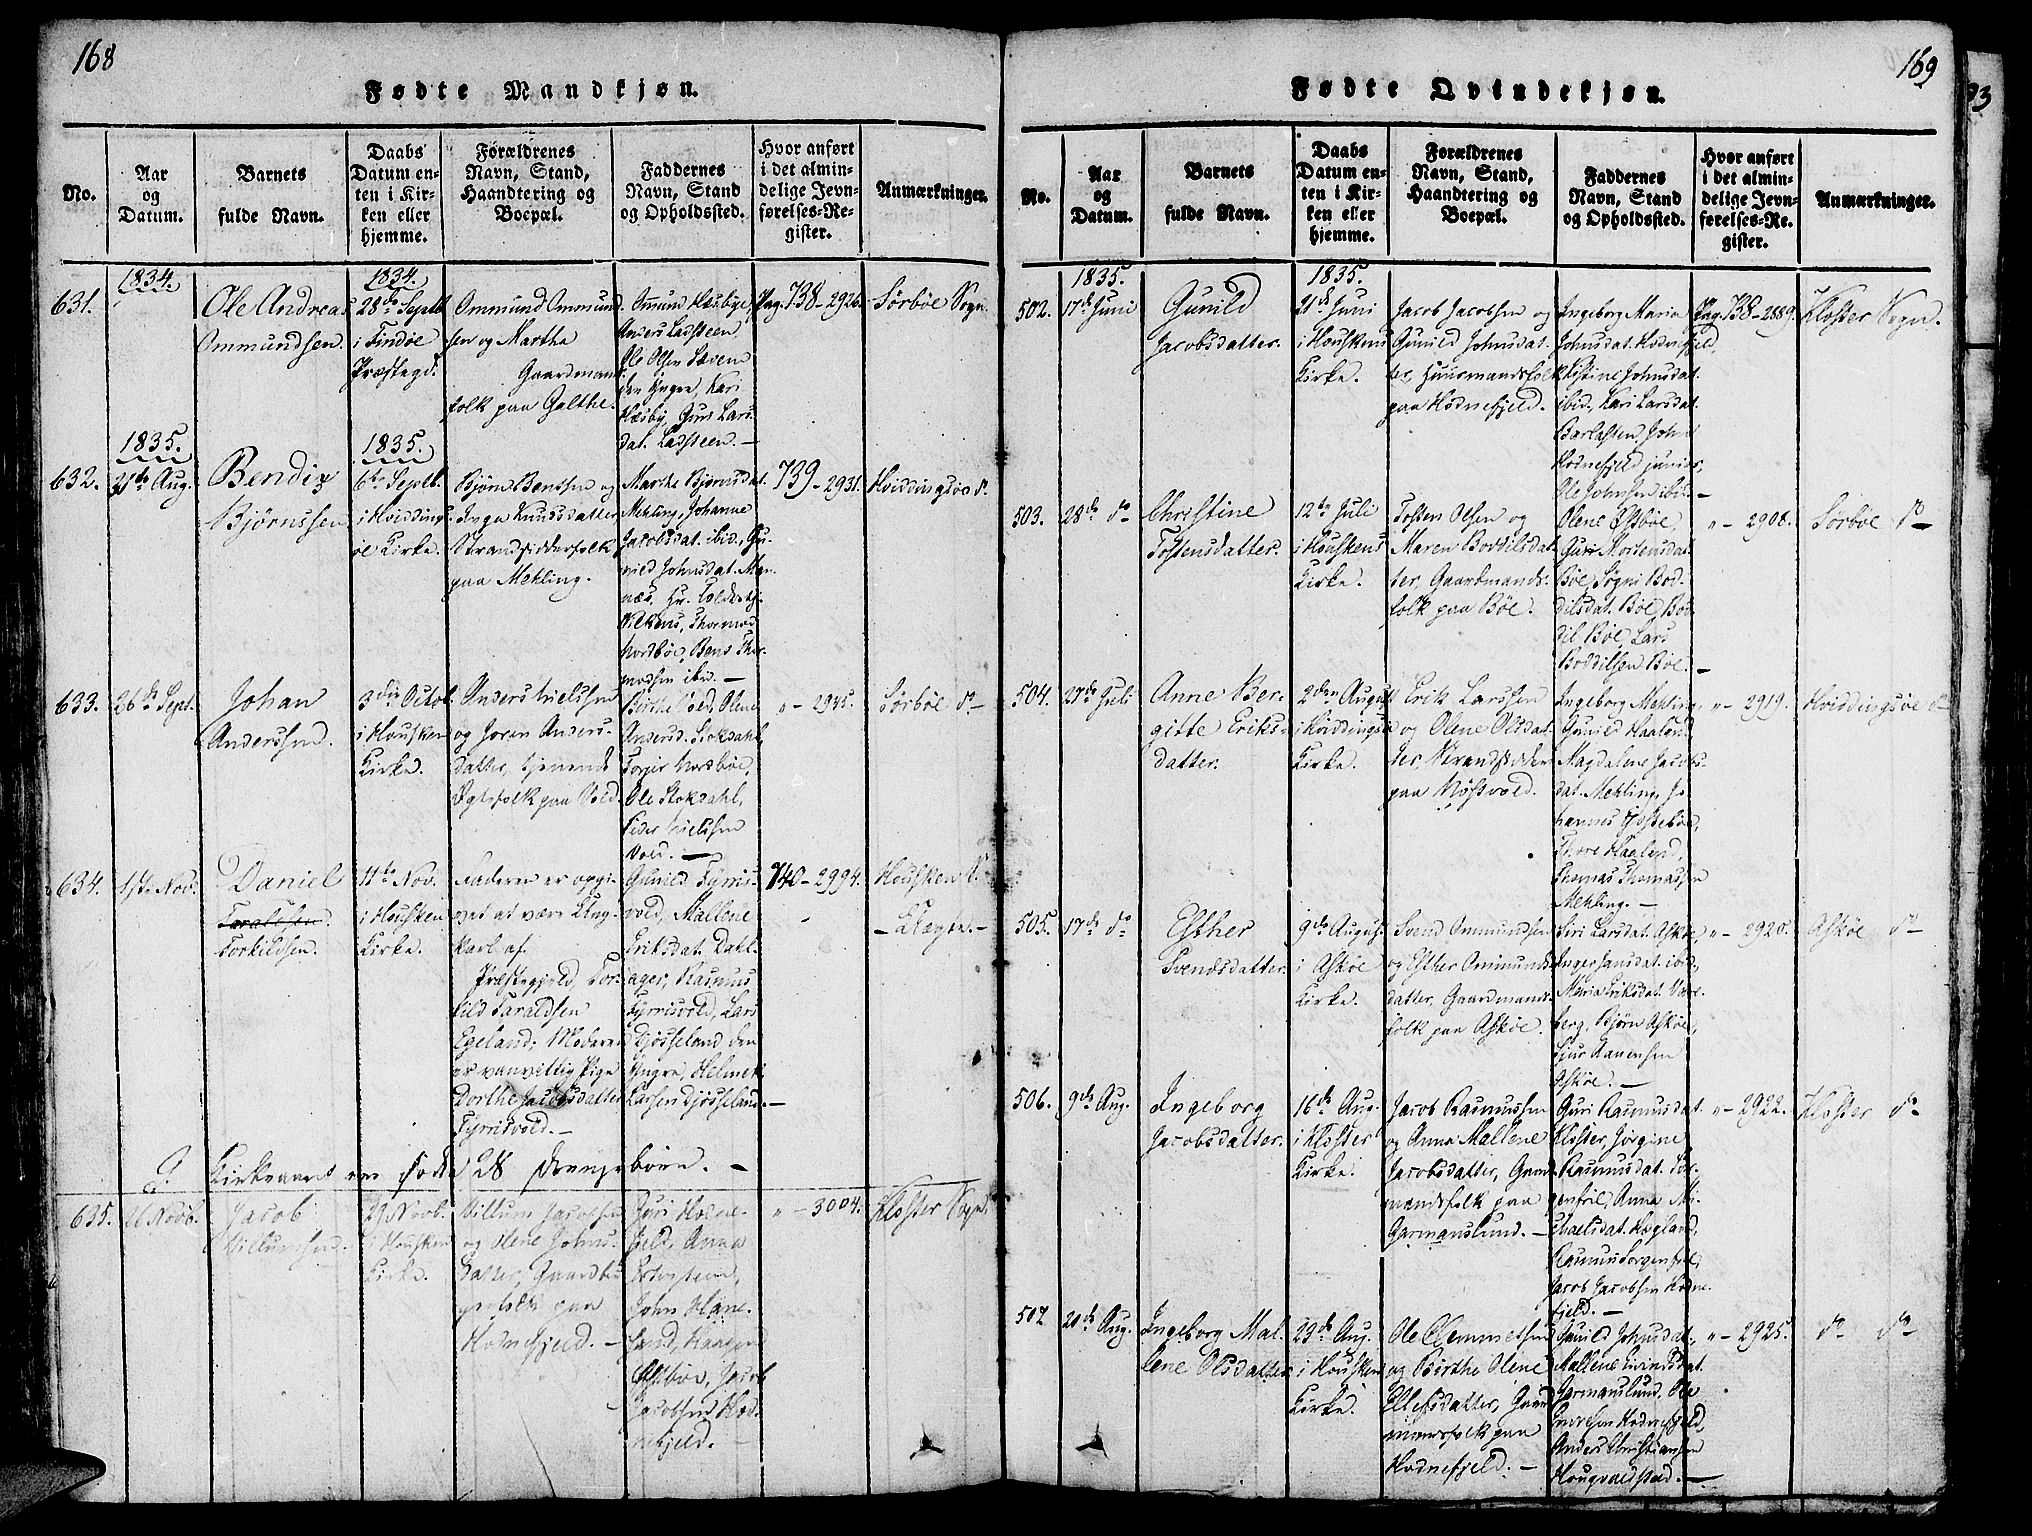 168
Fødte Mandkjøn.
No.
Aar
og
Datum.
Barnets
fulde Navn.
Daabs
Datum en-
ten i Kir-
ken eller
hjemme.
Forældrenes
Navn, Stand,
Haandtering og
Boepæl.
Faddernes
Navn, Stand
og Opholdssted.
Hvor anført
i det almin-
delige Jevn-
førelses-Re-
gister.
Anmærkninger.
631.
1834.
Ole Andreas
Ommundsen.
1834.
28de Septb.
i Findøe
Præstegd.
Ommund Ommund-
sen og Martha
Gaardmand-
folk paa Galthe.
Ommund Hæsbye,
Anders Ladsteen,
Ole Olsen
den Yngre, Kari
Hæsby, Guri Lars-
dat. Ladsteen. —
Pag. 738 - 2926.
Sørbøe Sogn.
632.
1835.
21de Aug.
Bendix
Bjørnssen
1835.
6te Septb.
i Hviddings-
øe Kirke.
Bjørn Bentsen og
Inga Knudsdatter
Strandsidderfolk
paa Mehling.
Marthe Bjørnsdat.
Mehling, Johanne
Jacobsdat. ibid., Gu-
nild Johnsdat.
Thormod
Nordbøe, Bent Thor-
modsen ibid. —
739 - 2931.
Hviddingsøe do
633.
26de Sept.
Johan
Anderssen.
3die Octob.
i Housken
Kirke.
Anders Nielssen
og Joren Anders-
datter, tjenende
Ægtefolk paa Vold.
Birthe Vold, Olene
Andersd. Stokdahl,
Torger Nordbøe,
Ole Stokdahl,
Peder Nielssen
Vold. —
" - 2945.
Sørbøe do
634.
1ste Nov.
Daniel
Taraldsen.
Torkildsen.
11te Nov.
i Housken
Kirke.
Faderen er opgi-
vet at være Ung-
karl af
Præstegjeld, Tor-
kild Taraldsen
Egeland; Moderen
er vanvittig Pige
Dorthe Jacobsdatter
Tyrrisvold. —
Gunild Tyrris-
vold, Mallene
Eriksdat. Dahl-
ager, Rasmus
Tyrrisvold, Lars
Djøsseland den
Yngre, Helmek
Larsen Djøsseland. —
740 - 2994.
Housken S.
- Uægte. -
Kirkeaaret ere Fødte 28 Drengebørn. —
635.
26 Novb.
Jacob
Villumsen.
29 Novb.
i Housken
Kirke.
Villum Jacobsen
og Olene Johns-
datter, Gaardbru-
gerfolk paa
Hodnefjeld. —
Guri Hodne-
fjeld, Anna
John Hane-
Østbøe, Jacob
Jacobsen Hod-
nefjeld. —
" - 3004.
Kloster Sogn.
169
Fødte Qvindekjøn.
No.
Aar
og
Datum.
Barnets
fulde Navn.
Daabs
Datum en-
ten i Kir-
ken eller
hjemme.
Forældrenes
Navn, Stand,
Haandtering og
Boepæl.
Faddernes
Navn, Stand
og Opholdssted.
Hvor anført
i det almin-
delige Jevn-
førelses-Re-
gister.
Anmærkninger.
502.
1835.
17de Juni
Gunild
Jacobsdatter.
1835.
21de Juni
i Houskens
Kirke.
Jacob Jacobsen og
Gunild Johnsdat-
ter, Huusmandsfolk
paa Hodnefjeld.
Ingeborg Maria
Johnsdat. Hodnefjeld,
Kistine Johnsdat.
ibid., Kari Larsdat.
Barlasten, John
Hodnefjeld junior,
Ole Johnsen ibid. —
Pag. 738 - 2889.
Kloster Sogn.
503.
28de do
Christine
Tostensdatter.
12te Juli
i Houskens
Kirke.
Tosten Olsen og
Maren Boddilsdat-
ter, Gaardmands-
folk paa Bøe.
Olene Østbøe,
Guri Mortensdat.
Bøe, Søgni Bod-
dilsdat. Bøe, Bod-
dil Bøe, Lars
Boddilsen Bøe. —
" - 2908.
Sørbøe do
504.
27de Juli
Anne Ber-
gitte Eriks-
datter.
2den August
i Hviddingsø
Kirke.
Erik Larssen
og Olene Olsdat-
ter, Strandsidder
paa Nøstvold.
Ingeborg Mehling,
Gunild Haaland
Magdalene Jacobs-
dat. Mehling, Jo-
hannes Østebøe,
Thore Haaland,
Thomas Thomassen
Mehling. —
" - 2919.
Hviddingsøe do
505.
17de do
Esther
Svendsdatter.
9de August
i Askøe
Kirke.
Svend Ommundsen
og Esther Ommunds-
datter, Gaardmands-
folk paa Askøe.
Siri Larsdat. Askøe,
Inger Jansdat. ibid,
Maria Eriksdat. Vare-
berg, Bjørn Askøe,
Sjur Aanensen
Askøe. —
" - 2920.
Askøe do
506.
9de Aug.
Ingeborg
Jacobsdatter.
16de Aug.
i Kloster
Kirke.
Jacob Rasmussen
og Anna Mallene
Jacobsdatter, Gaard-
mandsfolk paa
Garmanslund. —
Guri Rasmusdat.
Kloster, Jørgine
Rasmusdat. Sor-
genfrie, Anna Mi-
chaelsdat. Hogland,
Rasmus Sorgenfrie,
Jacob Jacobsen Hodne-
fjeld. —
" - 2922.
Kloster do
507
20de Aug.
Ingeborg Mal-
lene Olsdatter.
23de Aug.
i Housken
Kirke.
Ole Clemmetsen
og Birthe Olene
Ellefsdatter, Gaard-
mandsfolk paa
Hodnefjeld. —
Gunild Johnsdat.,
Mallene Svendsdat.
Garmanslund, Ole
Iversen Hodnefjeld,
Anders Christiansen
Hougvaldstad. —
" - 2925.
do do
93